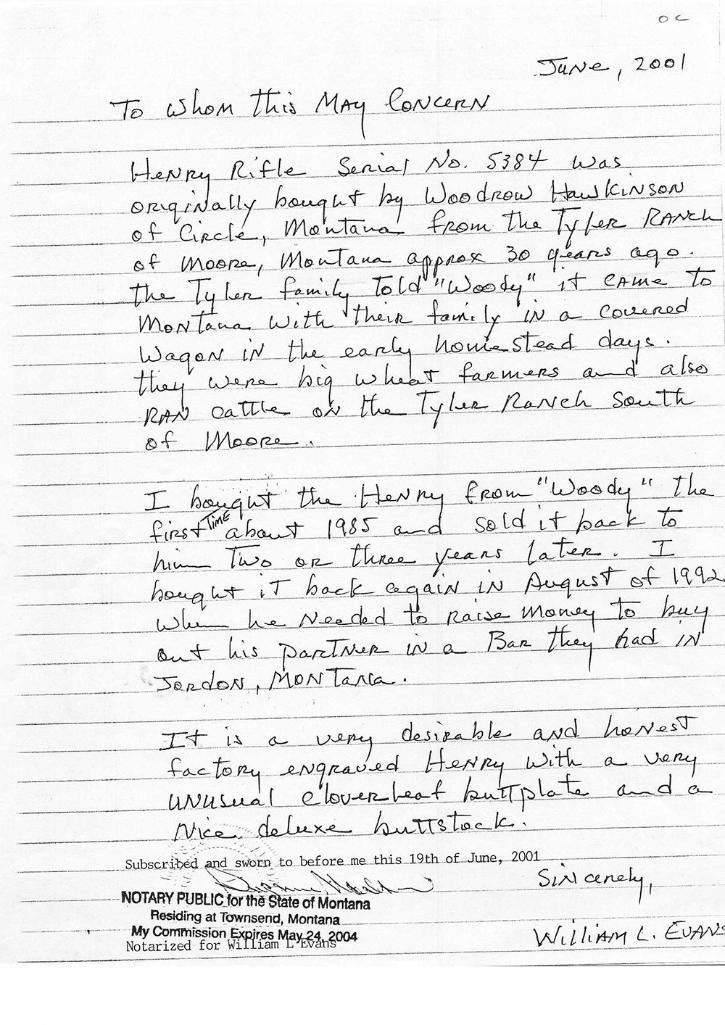 OC
June, 2001
To Whom this May Concern
Henry Rifle Serial No. 5384 was
originally bought by Woodrow Hawkinson
of Circle, Montana from the Tyler Ranch
of Moore, Montana approx 30 years ago.
the Tyler family told "Woody" it came to
Montana with their family in a covered
wagon in the early homestead days.
they were big wheat farmers and also
RAN cattle on the Tyler Ranch South
of Moore.
I bought the Henry from "Woody" the
first time about 1985 and sold it back to
him two or three years later. I
bought it back again in August of 1992
when he needed to raise money to buy
out his partner in a Bar they had in
Jordon, Montana.
It is a very desirable and honest
factory engraved Henry with a very
unusual cloverleaf buttplate and a
nice deluxe buttstock.
Subscribed and sworn to before me this 19th of June, 2001
Sincerely,
NOTARY PUBLIC for the State of Montana
Residing at Townsend, Montana
My Commission Expires May 24, 2004
Notarized for William L Evans
William L. Evans